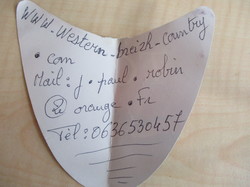 WWW-Western-breizh-country
• com
Mail: j • paul • robin
@ orange • Fr
Tèl: 0636530457